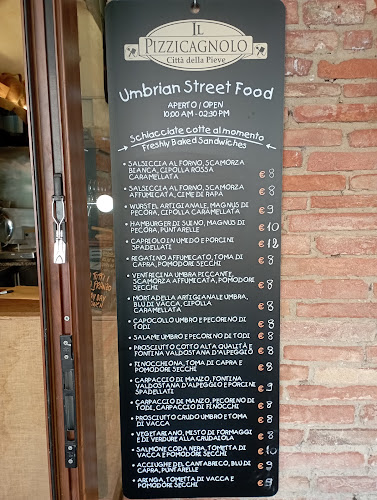 IL
PIZZICAGNOLO
Città della Pieve
Umbrian Street Food
APERTO / OPEN
10:00 AM - 02:30 PM
Schiacciate cotte al momento
Freshly Baked Sandwiches
• SALSICCIA AL FORNO, SCAMORZA
BIANCA, CIPOLLA ROSSA
CARAMELLATA € 8
• SALSICCIA AL FORNO, SCAMORZA
AFFUMICATA, CIME DI RAPA € 8
• WURSTEL ARTIGIANALE, MAGNUS DI
PECORA, CIPOLLA CARAMELLATA € 9
• HAMBURGER DI SUINO, MAGNUS DI
PECORA, PUNTARELLE € 10
• CAPRIOLO IN UMIDO E PORCINI
SPADELLATI € 12
• REGATINO AFFUMICATO, TOMA DI
CAPRA, POMODORE SECCHI € 8
• VENTRICINA UMBRA PICCANTE,
SCAMORZA AFFUMICATA, POMODORE
SECCHI € 8
• MORTADELLA ARTIGIANALE UMBRA,
BLU DI VACCA, CIPOLLA
CARAMELLATA € 8
• CAPOCOLLO UMBRO E PECORINO DI
TODI € 8
• SALAME UMBRO E PECORINO DI TODI € 8
• PROSCIUTTO COTTO ALTA QUALITÀ E
FONTINA VALDOSTANA D'ALPEGGIO € 8
• FINOCCHIONA, TOMA DI CAPRA E
POMODORE SECCHI € 8
• CARPACCIO DI MANZO, FONTINA
VALDOSTANA D'ALPEGGIO E PORCINI
SPADELLATI € 9
• CARPACCIO DI MANZO, PECORINO DI
TODI, CARPACCIO DI FINOCCHI € 8
• PROSCIUTTO CRUDO UMBRO E TOMA
DI VACCA € 8
• VEGETARIANO, MISTO DI FORMAGGI
E DI VERDURE ALLA CRUDAIOLA € 8
• SALMONE CODA NERA, TOMETTA DI
VACCA E POMODORE SECCHI € 10
• ACCIUGHE DEL CANTABRICO, BLU DI
CAPRA, PUNTARELLE € 9
• ARINGA, TOMETTA DI VACCA E
POMODORE SECCHI € 9